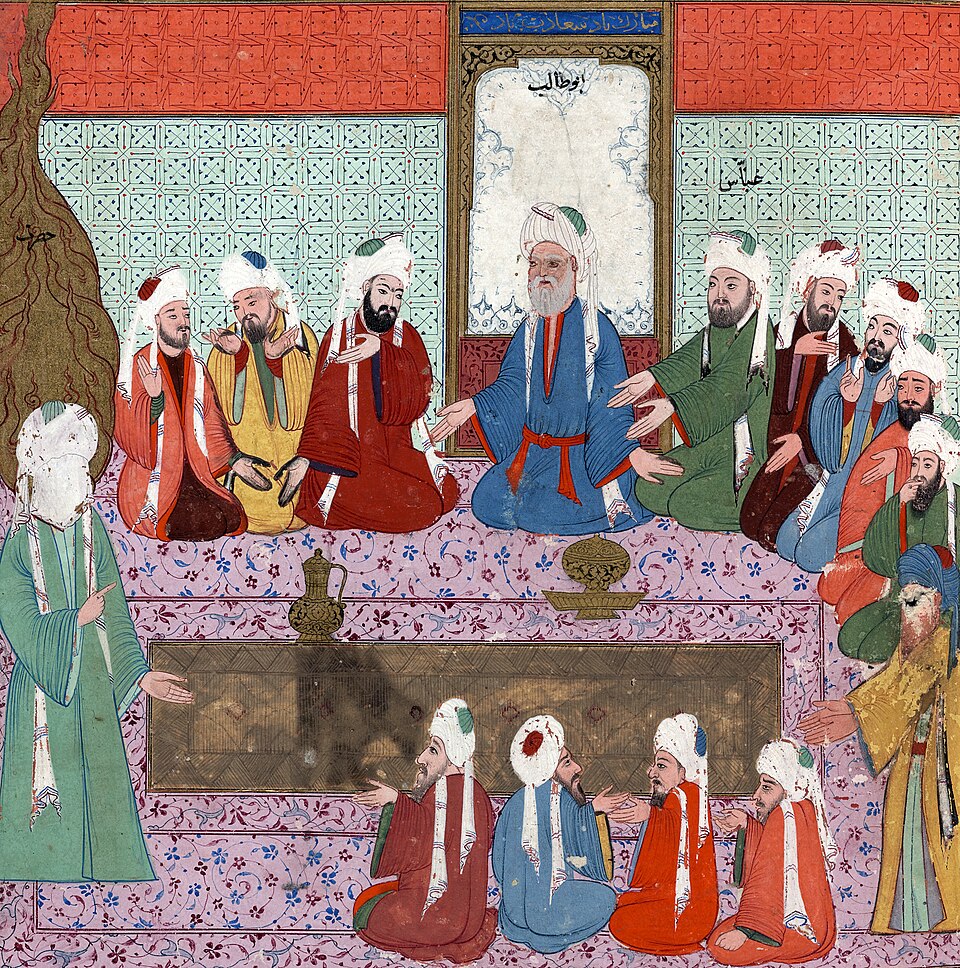 مبارك باد سعادت
ابو طالب
عبّاس
حضرت